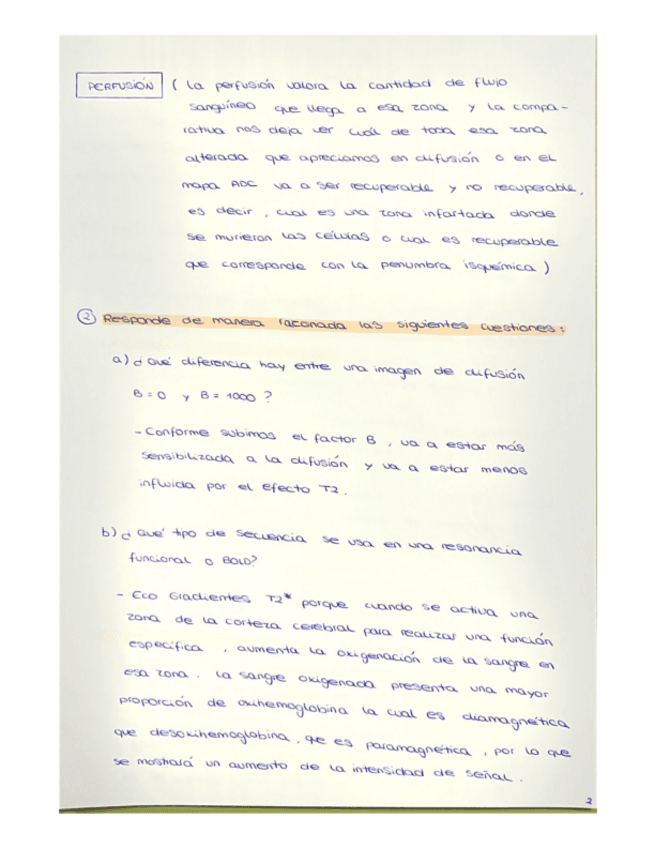 PERFUSIÓN ( La perfusión valora la cantidad de flujo
sanguíneo que llega a esa zona y la compa-
rativa nos deja ver cuál de toda esa zona
alterada que apreciamos en difusión o en el
mapa ADC va a ser recuperable y no recuperable,
es decir, cual es una zona infartada donde
se murieron las células o cual es recuperable
que corresponde con la penumbra isquémica )
② Responde de manera raconada las siguientes cuestiones:
a) ¿Qué diferencia hay entre una imagen de difusión
B=0 y B=1000?
- Conforme subimos el factor B, va a estar más
sensibilizada a la difusión y va a estar menos
influida por el efecto T2.
b) ¿Qué tipo de secuencia se usa en una resonancia
funcional o BOLD?
- Eco Gradientes T2* porque cuando se activa una
zona de la corteza cerebral para realizar una función
específica, aumenta la oxigenación de la sangre en
esa zona. La sangre oxigenada presenta una mayor
proporción de oxihemoglobina la cual es diamagnética
que desoxihemoglobina, qe es paramagnética, por lo que
se mostrará un aumento de la intensidad de señal.
2